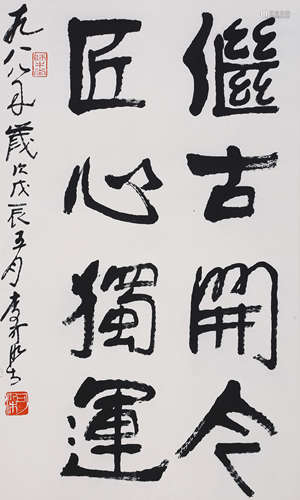 繼古開今
匠心獨運
一九八八年歲次戊辰五月